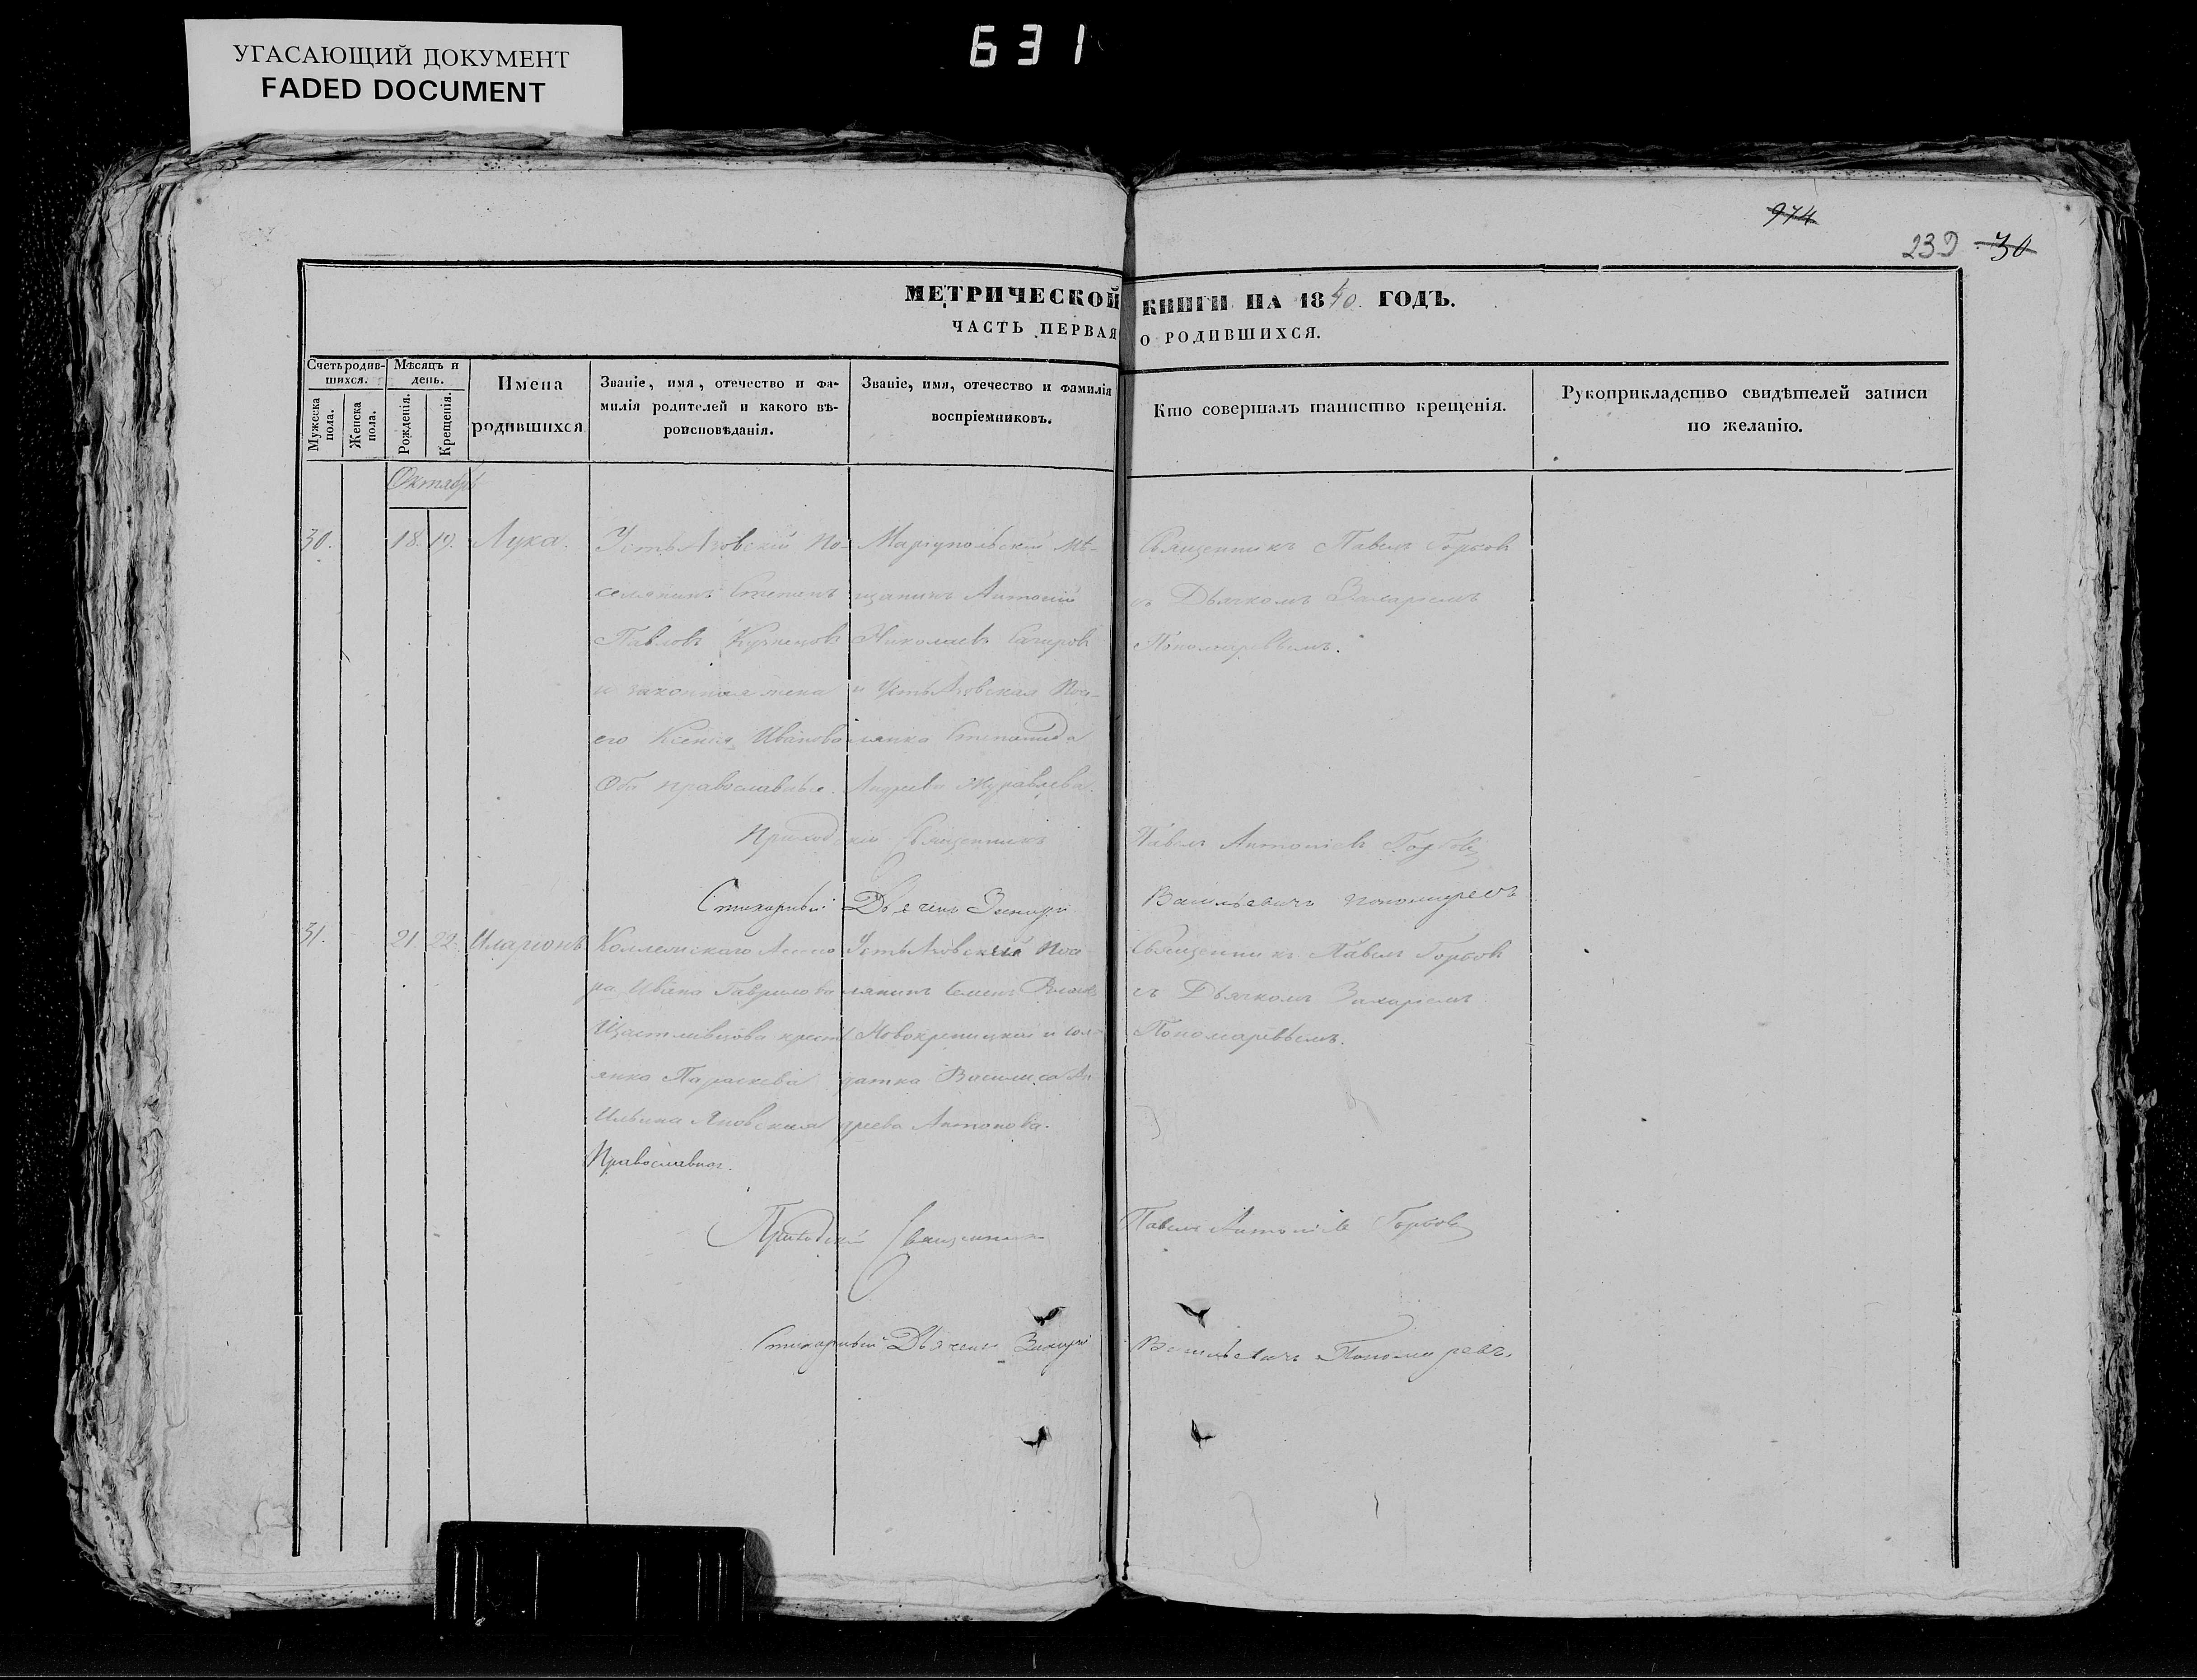 УГАСАЮЩИЙ ДОКУМЕНТ
FADED DOCUMENT
631
974
239 30
МЕТРИЧЕСКОЙ КНИГИ НА 1840 ГОДЪ.
ЧАСТЬ ПЕРВАЯ О РОДИВШИХСЯ.
Счетъ родив-
шихся.
Мужеска
пола.
Женска
пола.
Мѣсяцъ и
день.
Рожденія.
Крещенія.
Имена
родившихся
Званіе, имя, отечество и фа-
милія родителей и какого вѣ-
роисповѣданія.
Званіе, имя, отечество и фамилія
воспріемниковъ.
Кто совершалъ таинство крещенія.
Рукоприкладство свидѣтелей записи
по желанію.
Октябрь
30.
18.
19.
Лука.
Усть Азовскій По-
селянинъ Степанъ
Павловъ Кузнецовъ
и законная жена
его Ксенія Иванова
Оба православные.
Маріупольскій Мѣ-
щанинъ Антоній
Николаевъ
и Усть Азовская Посе-
лянка Степанида
Андреева Журавлева.
Священникъ Павелъ Горбовъ
съ Дьячкомъ Захаріемъ
Пономаревымъ.
Приходскій Священникъ Павелъ Антоніевъ Горбовъ
Стихарный Дьячекъ Захарій Васильевичъ Пономаревъ
31.
21.
22.
Иларіонъ
Ивана Гаврилова
Щастливцова крест
янка Параскева
Ильина
Православная.
Усть Азовскій Посе
лянинъ Семенъ
и сол-
датка Василиса Ан
дреева Антонова.
Священникъ Павелъ Горбовъ
съ Дьячкомъ Захаріемъ
Пономаревымъ.
Приходскій Священникъ Павелъ Антоніевъ Горбовъ
Стихарный Дьячекъ Захарій Васильевичъ Пономаревъ.